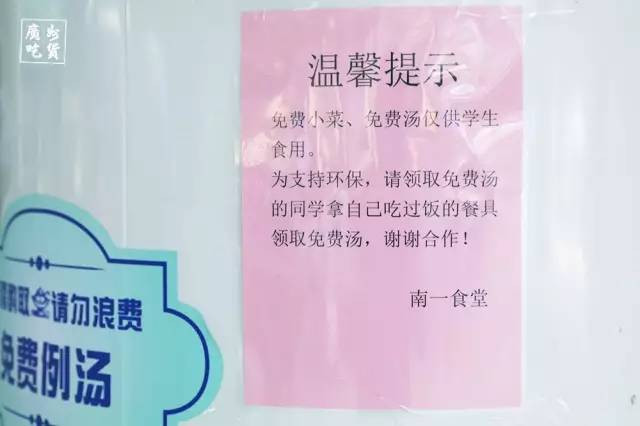 廣州
吃货
温馨提示
免费小菜、免费汤仅供学生
食用。
为支持环保，请领取免费汤
的同学拿自己吃过饭的餐具
领取免费汤，谢谢合作！
南一食堂
取 请勿浪费
免费例汤